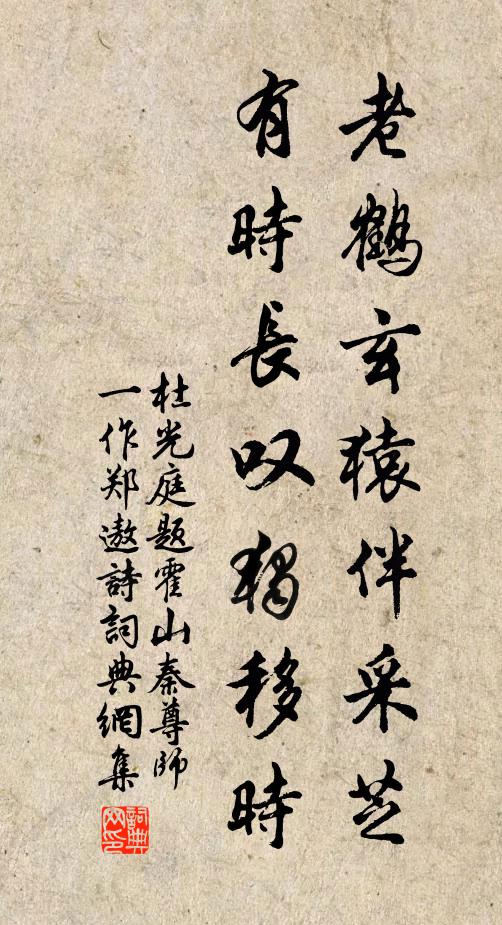 老鶴玄猿伴采芝
有時長叹獨移時
杜光庭題霍山秦尊師
一作郑遨詩詞典網集
詞典网印